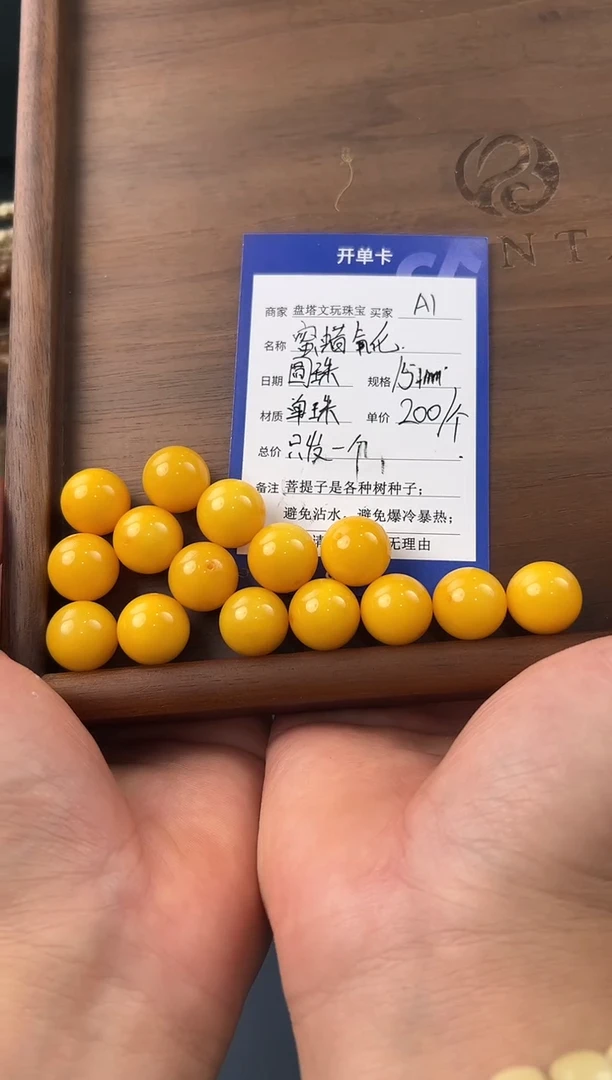 NT
开单卡
商家 盘塔文玩珠宝 买家 A1
名称 蜜蜡氧化.
日期 圆珠 规格 15+mm
材质 单珠 单价 200/个
总价 只发一个
备注 菩提子是各种树种子；
避免沾水、避免爆冷暴热；
无理由